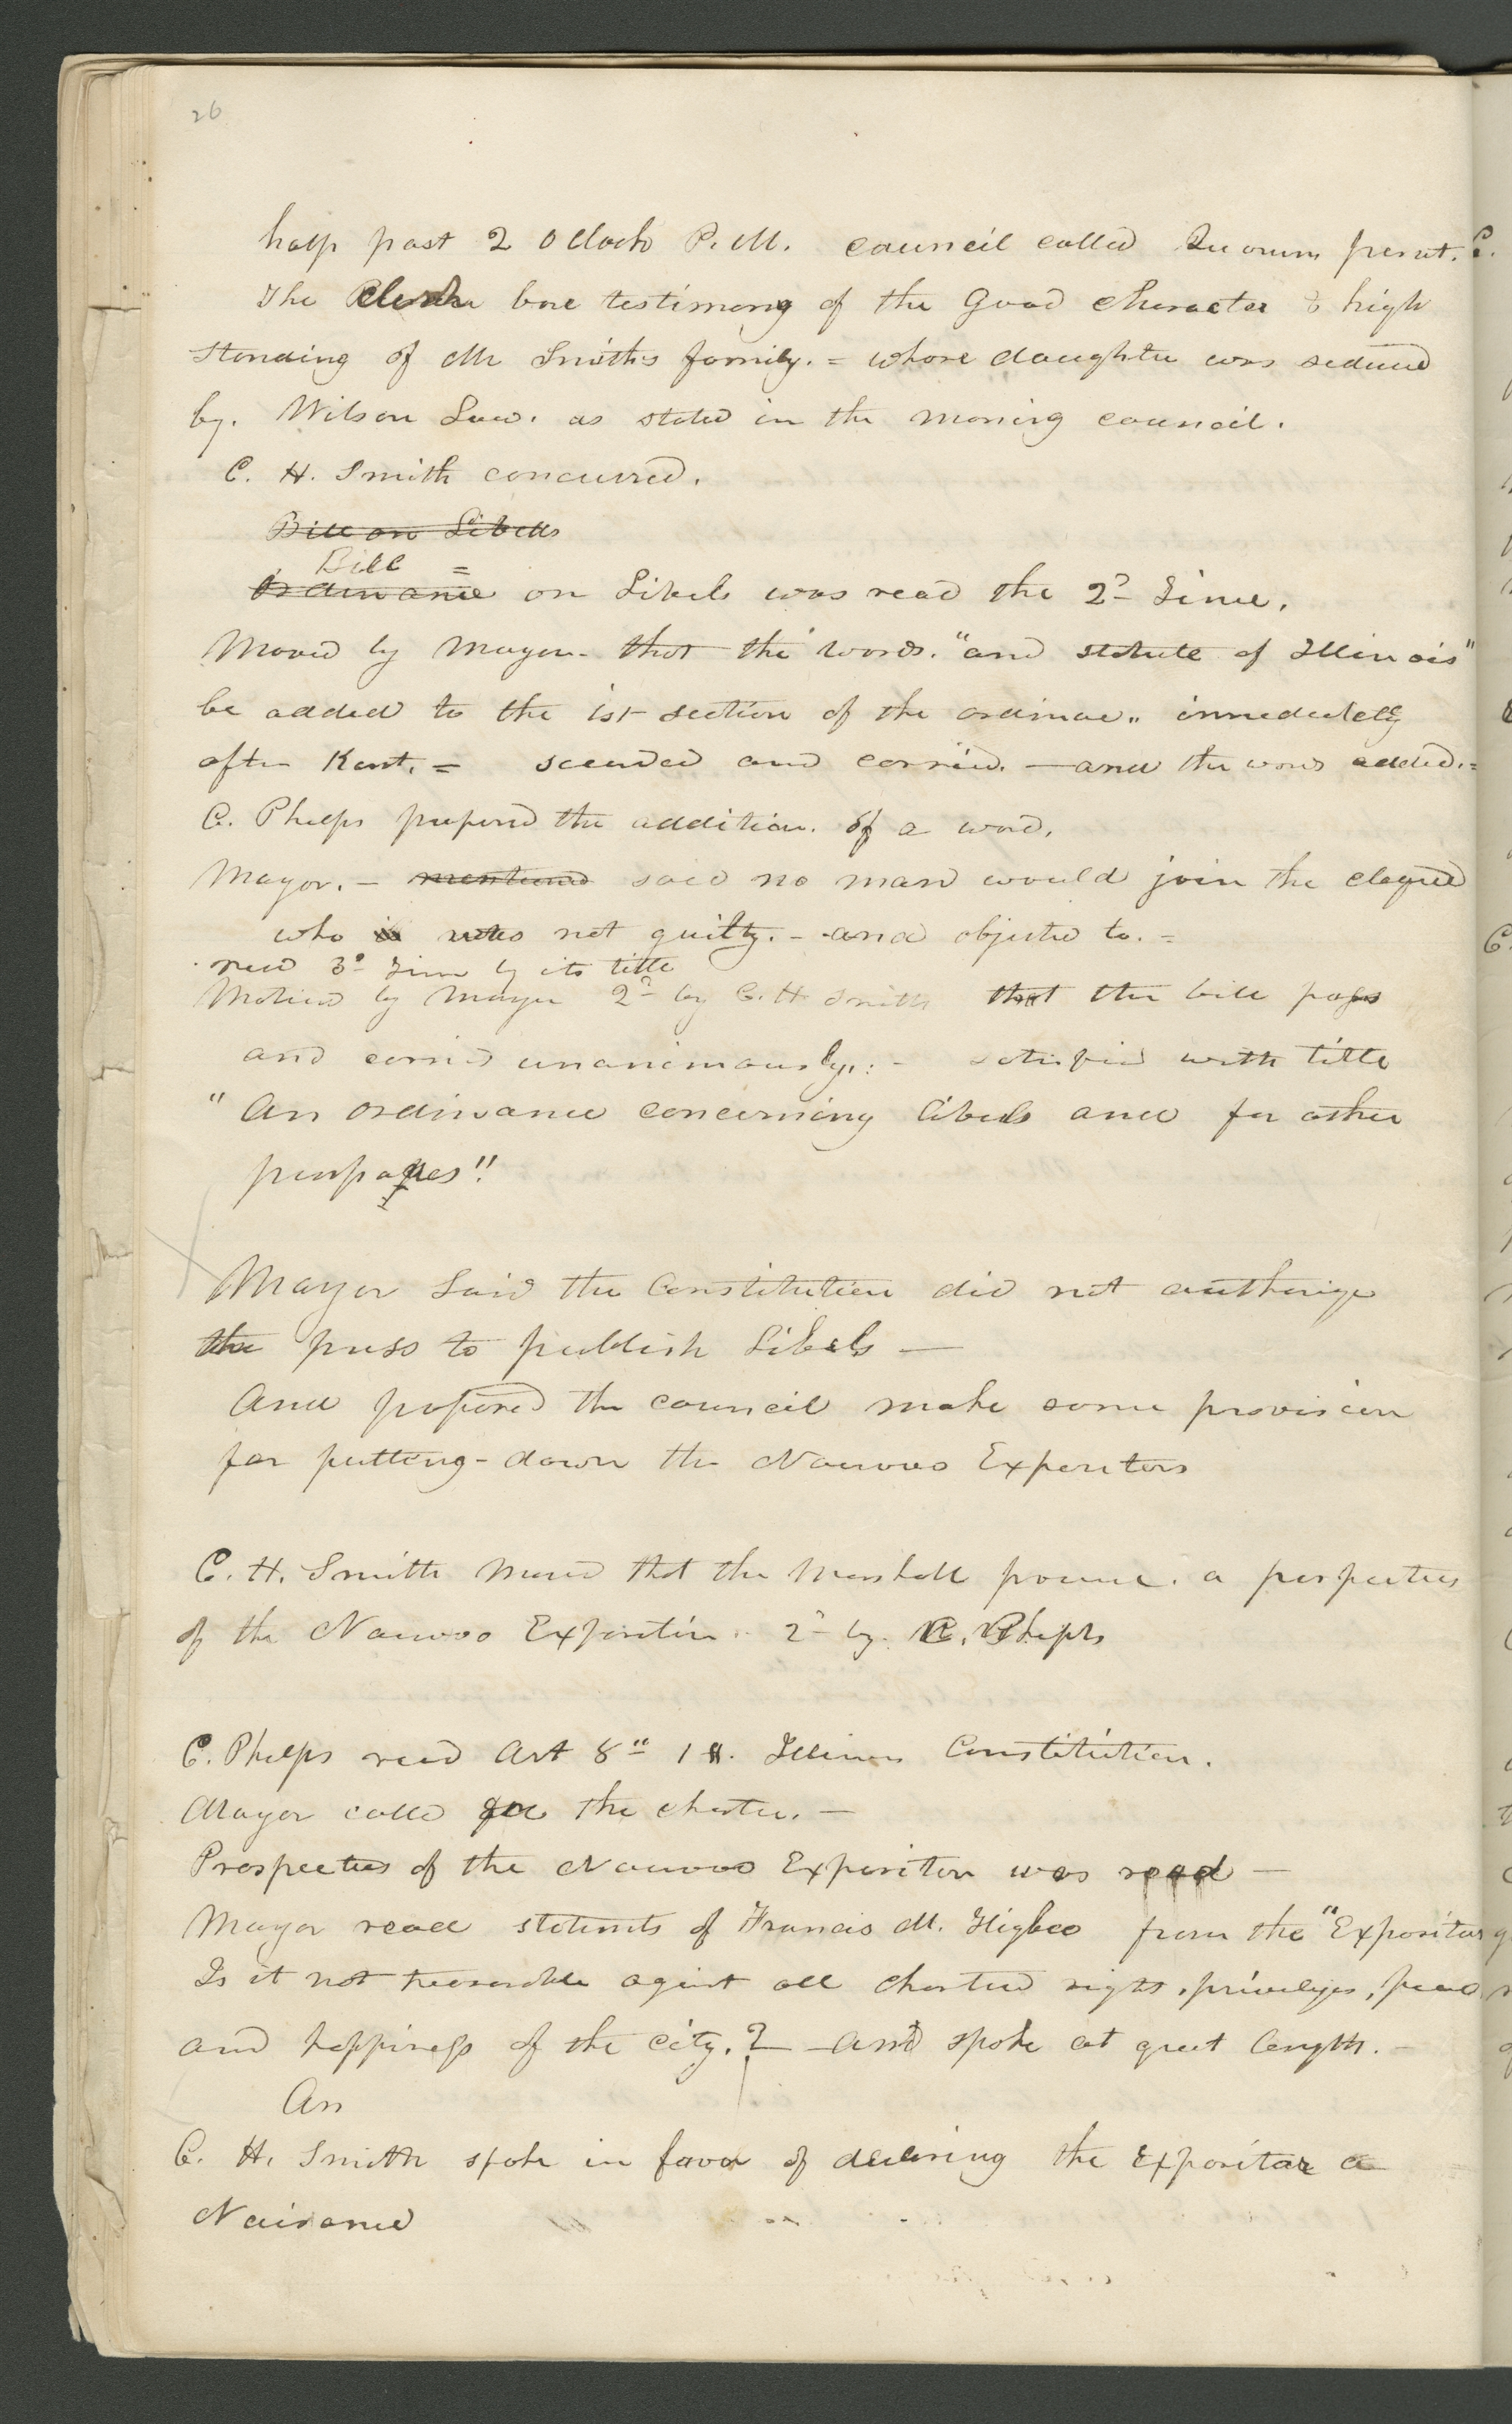 26
half past 2 oClock P.M. council called Quorum presnt.
The Clerk bore testimony of the Good character & high
standing of Mr Smiths family. = whose daughter was seduced
by. Wilson Law. as stated in the morning council.
C. H. Smith concurred.
Bill on Libells
Bill =
Ordinance on Libels was read the 2d Time.
Moved by Mayor. that the words. "and statute of Illinois"
be added to the 1st section of the ordinace,, immediately
after Kent. = seconded and carried. — and the words added. =
C. Phelps proposed the addition. of a word.
Mayor. — mentioned said no man would join the
who is was not guilty. - and objected to. =
read 3d Time by its title
Motiend by Mayor 2d by C. H Smith that the bill pass
and carried unanimously. : - satisfied with title
"An ordinance concerning libels and for other
purposes".
Mayor Said the Constitution did not authorize
the press to publish Libels —
And proposed the council make some provision
for putting-down the Nauvoo Expositor
C. H. Smith moved that the Marshall procure. a prospectus
of the Nauvoo Expositor. 2d by. C. Phelps
C. Phelps read Art 8" 1 Illinois Constitution.
Mayor calld for the charter. —
Prospectus of the Nauvoo Expositor was read —
Mayor read statemts of Francis M. Higbee from the "Expositor
Is it not treasonable against all chartered rights, privileges, peace
and happiness of the city. ? — and spoke at great length. -
An
C. H. Smith spoke in favor of declaring the Expositor a
Naisance